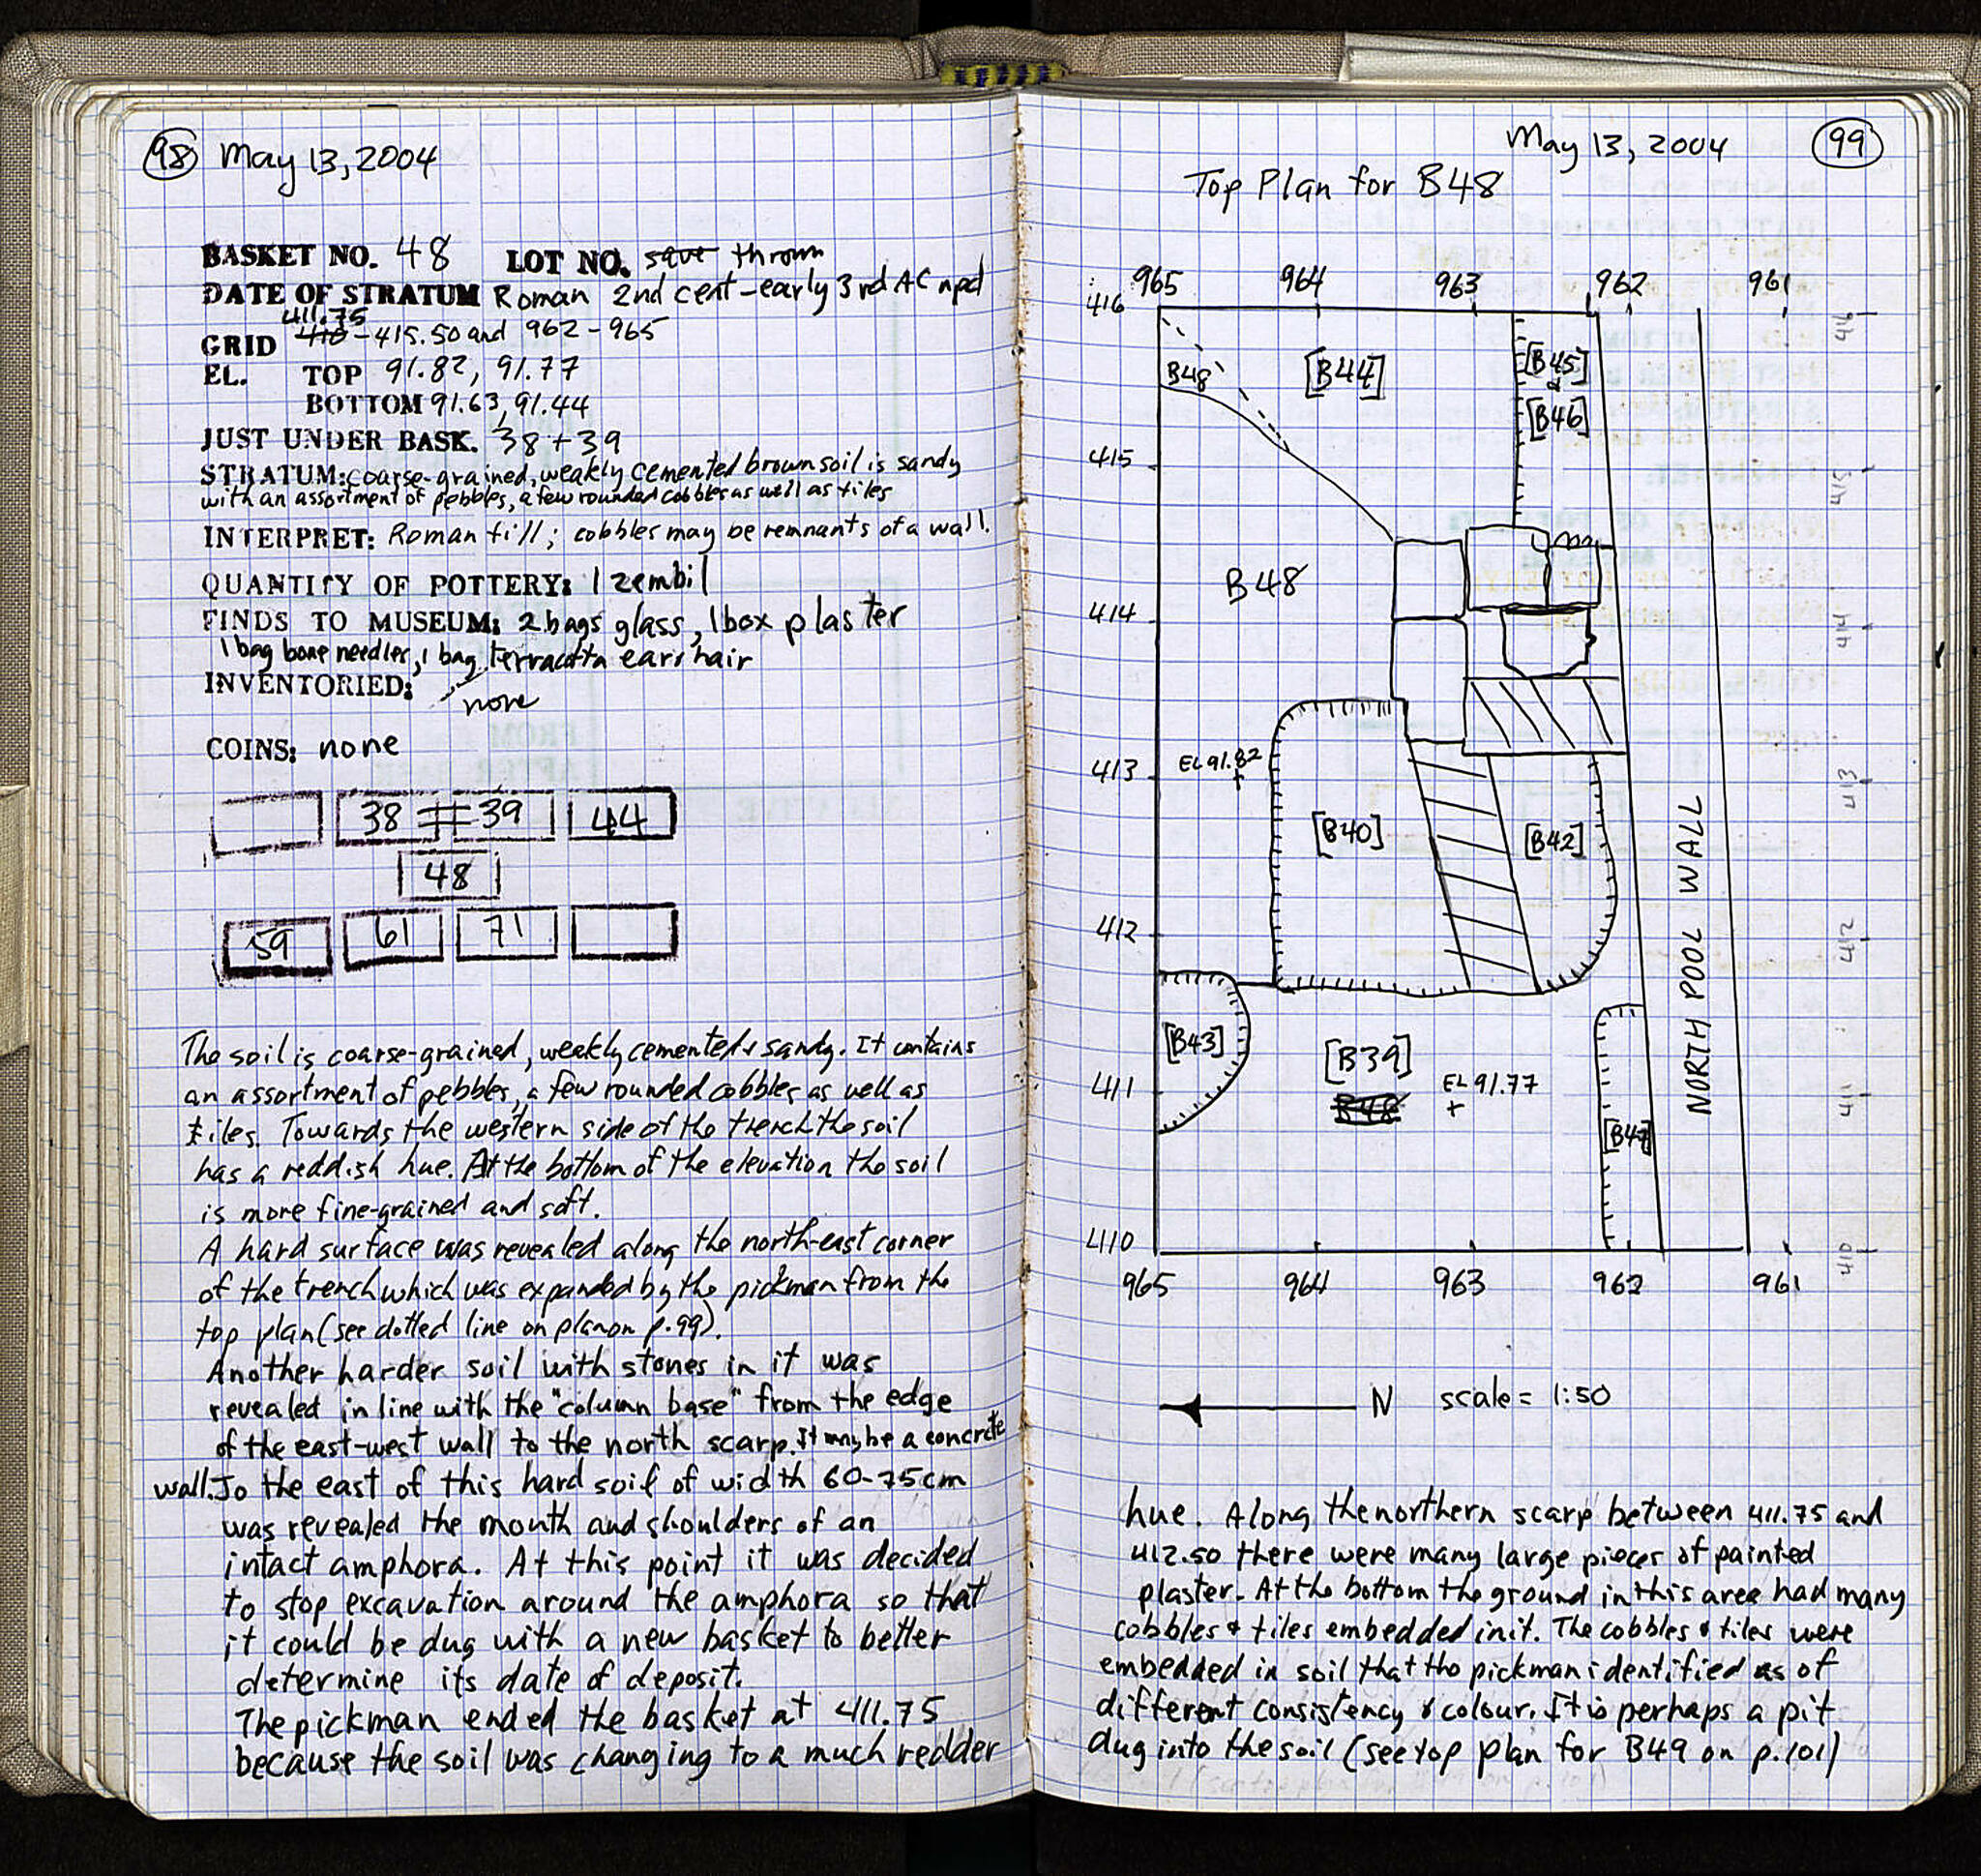 98 May 13, 2004
BASKET NO. 48 LOT NO. save thrown
DATE OF STRATUM Roman 2nd cent-early 3rd AC npd
411.75
GRID 410-415.50 and 962-965
EL. TOP 91.82, 91.77
BOTTOM 91.63, 91.44
JUST UNDER BASK. 38+39
STRATUM: coarse-grained, weakly cemented brown soil is sandy
with an assortment of pebbles, a few rounded cobbles as well as tiles
INTERPRET: Roman fill; cobbles may be remnants of a wall.
QUANTITY OF POTTERY: 1 zembil
FINDS TO MUSEUM: 2 bags glass, 1 box plaster
1 bag bone needles, 1 bag terracotta ear & hair
INVENTORIED:
none
COINS: none
38 = 39 44
48
59 61 71
The soil is coarse-grained, weakly cemented & sandy. It contains
an assortment of pebbles, a few rounded cobbles as well as
tiles. Towards the western side of the trench the soil
has a reddish hue. At the bottom of the elevation the soil
is more fine-grained and soft.
A hard surface was revealed along the north-east corner
of the trench which was expanded by the pickman from the
top plan (see dotted line on plan on p. 99).
Another harder soil with stones in it was
revealed in line with the "column base" from the edge
of the east-west wall to the north scarp. It may be a concrete
wall. To the east of this hard soil of width 60-75cm
was revealed the mouth and shoulders of an
intact amphora. At this point it was decided
to stop excavation around the amphora so that
it could be dug with a new basket to better
determine its date of deposit.
The pickman ended the basket at 411.75
because the soil was changing to a much redder
May 13, 2004 99
Top Plan for B48
965 964 963 962 961
416 416
B48 [B44] [B45]
&
[B46]
415 415
B48
414 414
EL 91.82
413 413
[B40] [B42]
NORTH POOL WALL
412 412
[B43] [B39]
B48
EL 91.77
411 411
[B47]
410 410
965 964 963 962 961
N scale = 1:50
hue. Along the northern scarp between 411.75 and
412.50 there were many large pieces of painted
plaster. At the bottom the ground in this area had many
cobbles & tiles embedded in it. The cobbles & tiles were
embedded in soil that the pickman identified as of
different consistency & colour. It is perhaps a pit
dug into the soil (see top plan for B49 on p. 101)